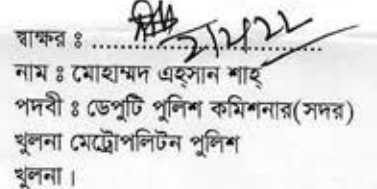 স্বাক্ষর ঃ ........................
নাম ঃ মোহাম্মদ এহ্সান শাহ্
পদবী ঃ ডেপুটি পুলিশ কমিশনার(সদর)
খুলনা মেট্রোপলিটন পুলিশ
খুলনা।